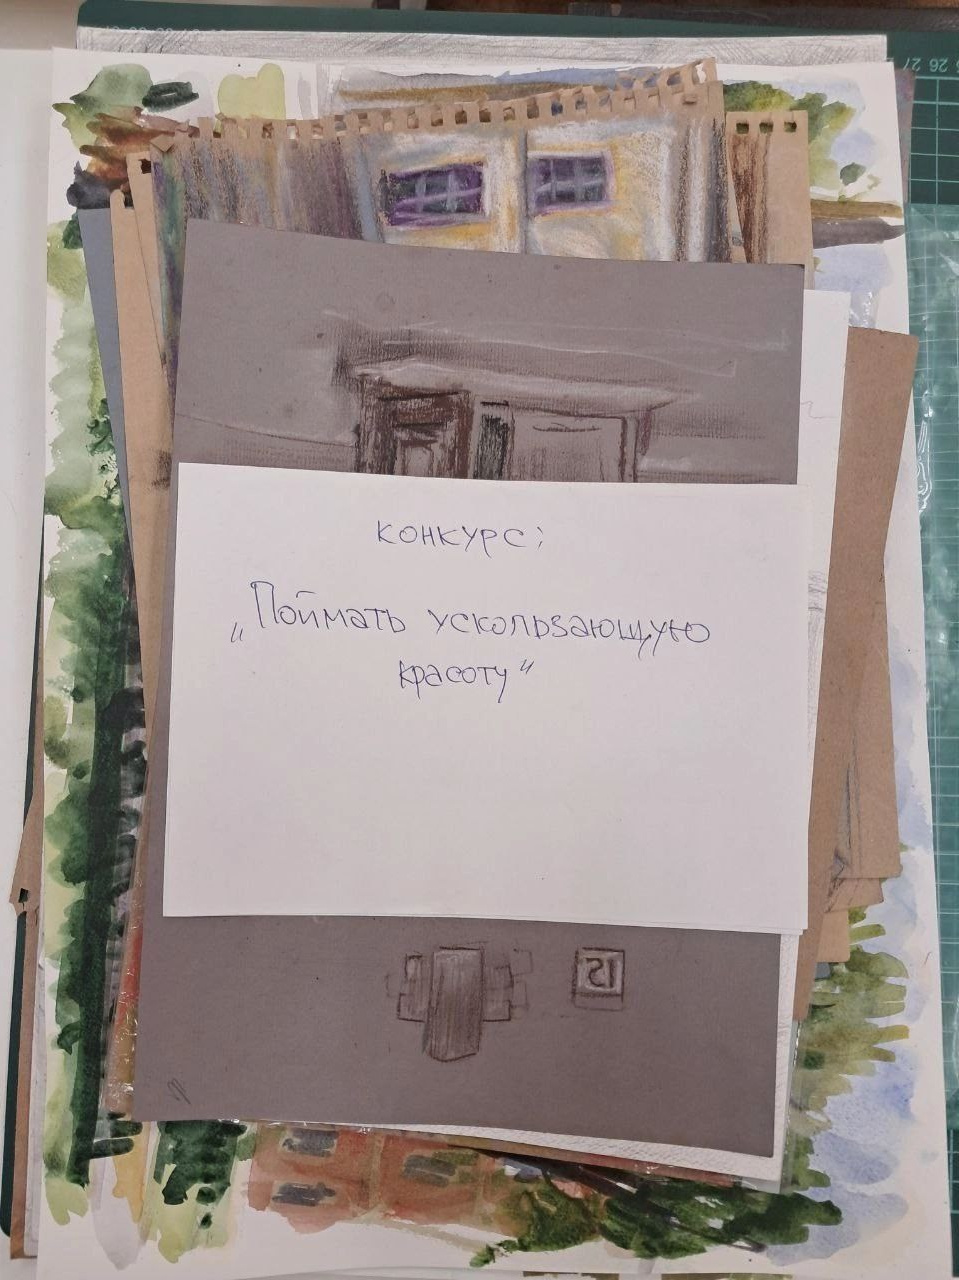 26 27
конкурс:
„Поймать ускользающую
красоту“
15